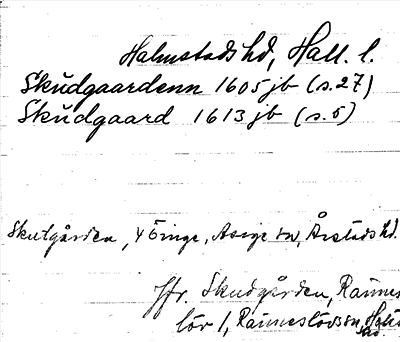 Halmstads hd, Hall. l.
Skudgaardenn 1605 jb (s.27)
Skudgaard 1613 jb (s.5)
Skutgården, Asige sn, Årstads hd.
Jfr. Skudgården,
löv 1, Ränneslövs sn,